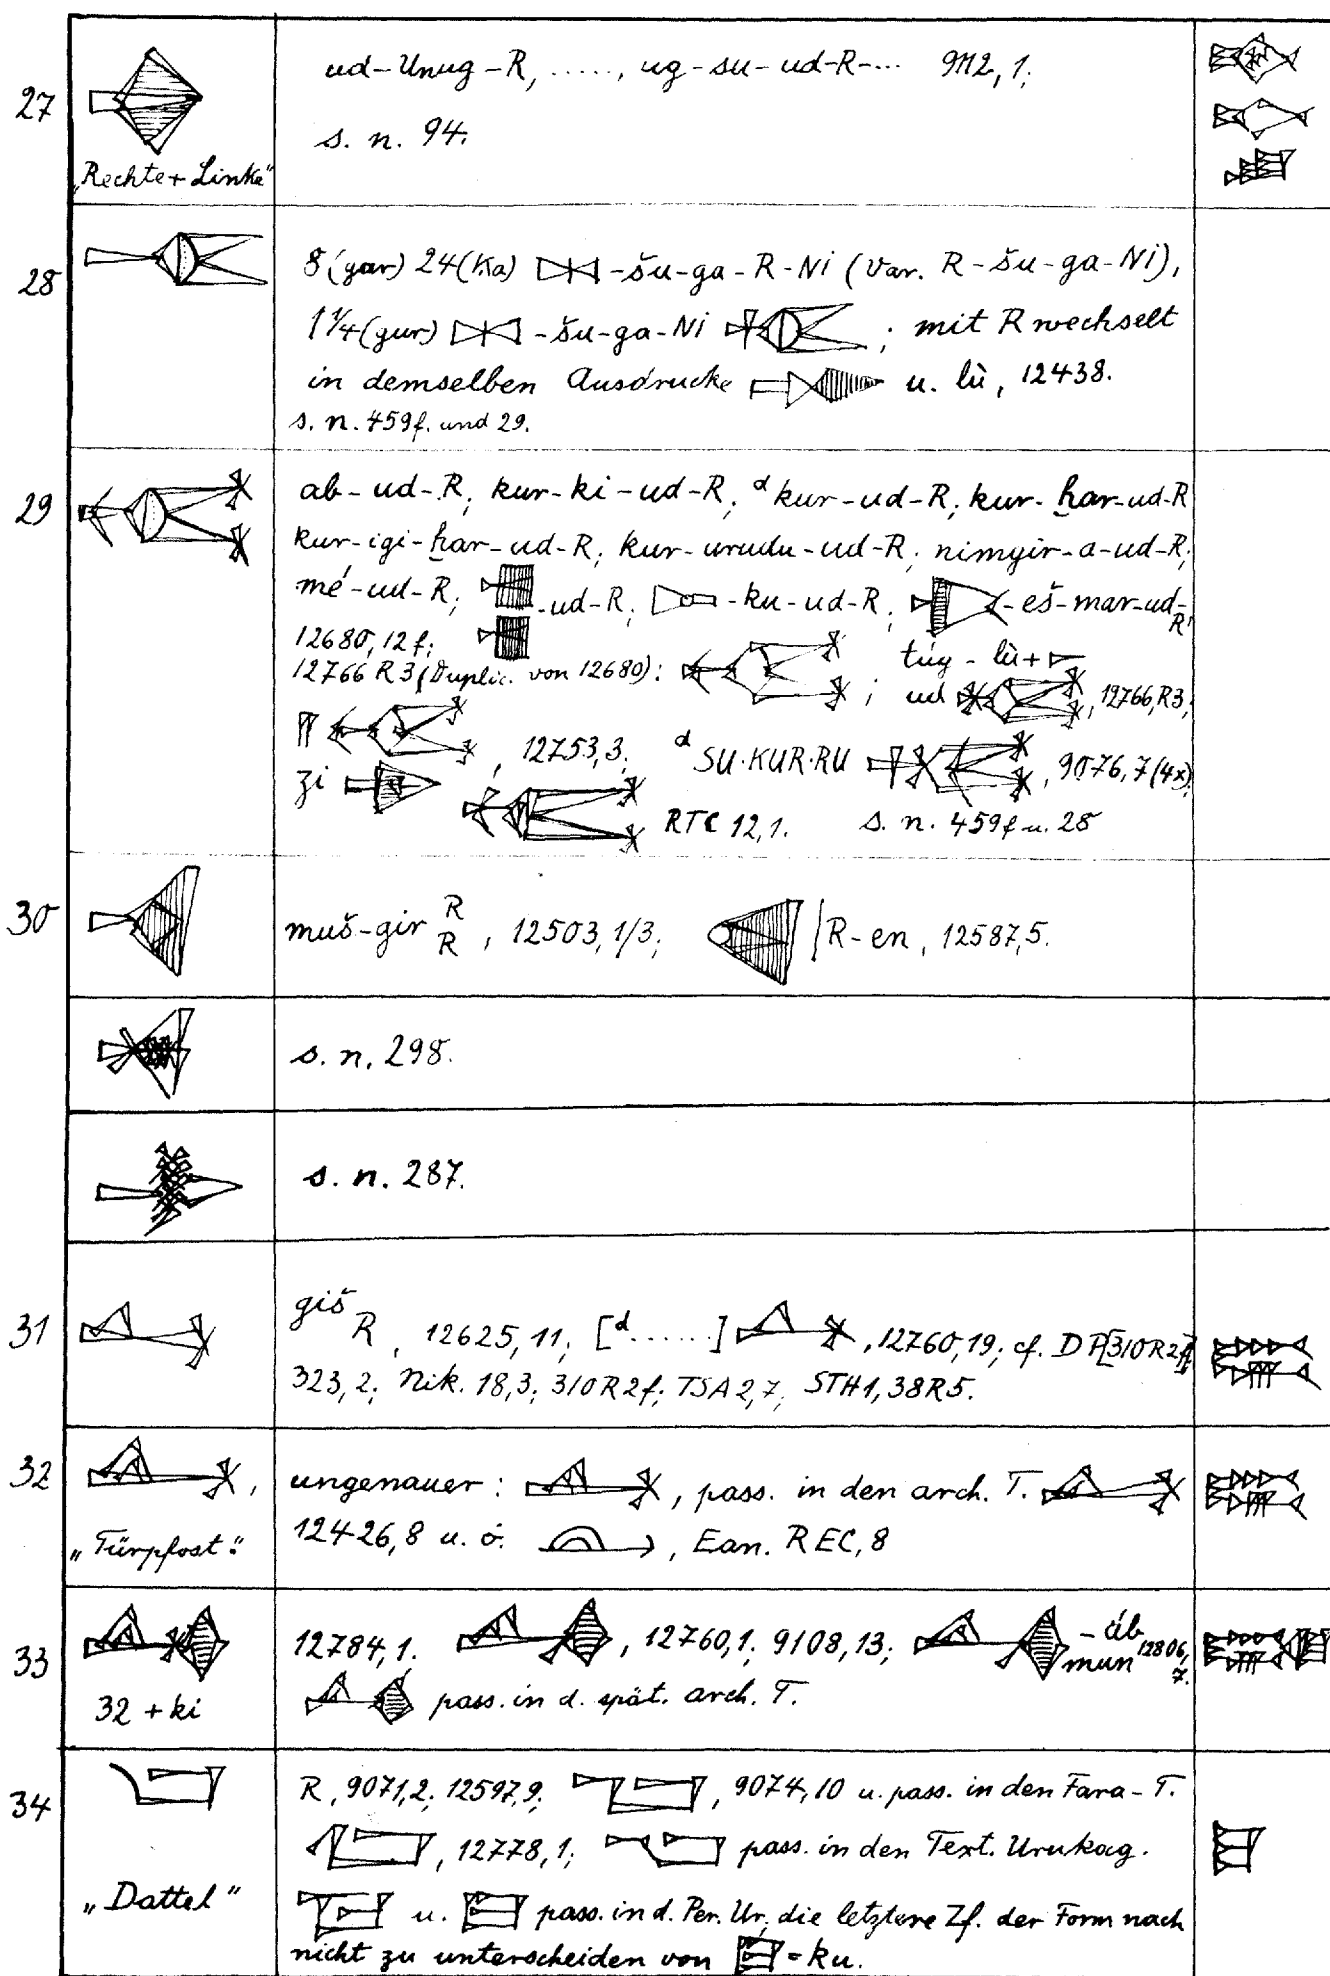 27
ud-Unug-R, ....., ug-su-ud-R-... 9112, 1;
s. n. 94.
„Rechte + Linke“
28
8 (gar) 24 (Ka) -šu-ga-R-Ni (Var. R-šu-ga-Ni),
1 1/4 (gur) -šu-ga-Ni ; mit R wechselt
in demselben Ausdrucke u. lù, 12438.
s. n. 459f. und 29.
29
ab-ud-R; kur-ki-ud-R; ᵈkur-ud-R; kur-ḫar-ud-R
kur-igi-ḫar-ud-R; kur-urudu-ud-R; nimgir-a-ud-R;
mé-ud-R; -ud-R; -ku-ud-R; -eš-mar-ud-R;
12680, 12 f;
12766 R 3 (Duplic. von 12680): ; túg-lù+
ud , 12766, R3;
, 12753, 3; ᵈSU·KUR·RU , 9076, 7 (4x);
zi
RTC 12, 1. s. n. 459f u. 28
30
muš-gir R R, 12503, 1/3; /R-en, 12587, 5.
s. n. 298.
s. n. 287.
31
giš R, 12625, 11; [ᵈ......] , 12760, 19; cf. DP [310 R 2f]
323, 2; Nik. 18, 3; 310 R 2f; TSA 2, 7; STH 1, 38 R 5.
32
ungenauer: , pass. in den arch. T.
„Türpfost.“
12426, 8 u. ö. , Ean. REC, 8
33
12784, 1. , 12760, 1; 9108, 13; -áb
mun 12806, 7.
32 + ki
pass. in d. spät. arch. T.
34
R, 9071, 2; 12597, 9; , 9074, 10 u. pass. in den Fara-T.
, 12778, 1; pass. in den Text. Urukag.
„Dattel“
u. pass. in d. Per. Ur, die letztere Zf. der Form nach
nicht zu unterscheiden von = ku.